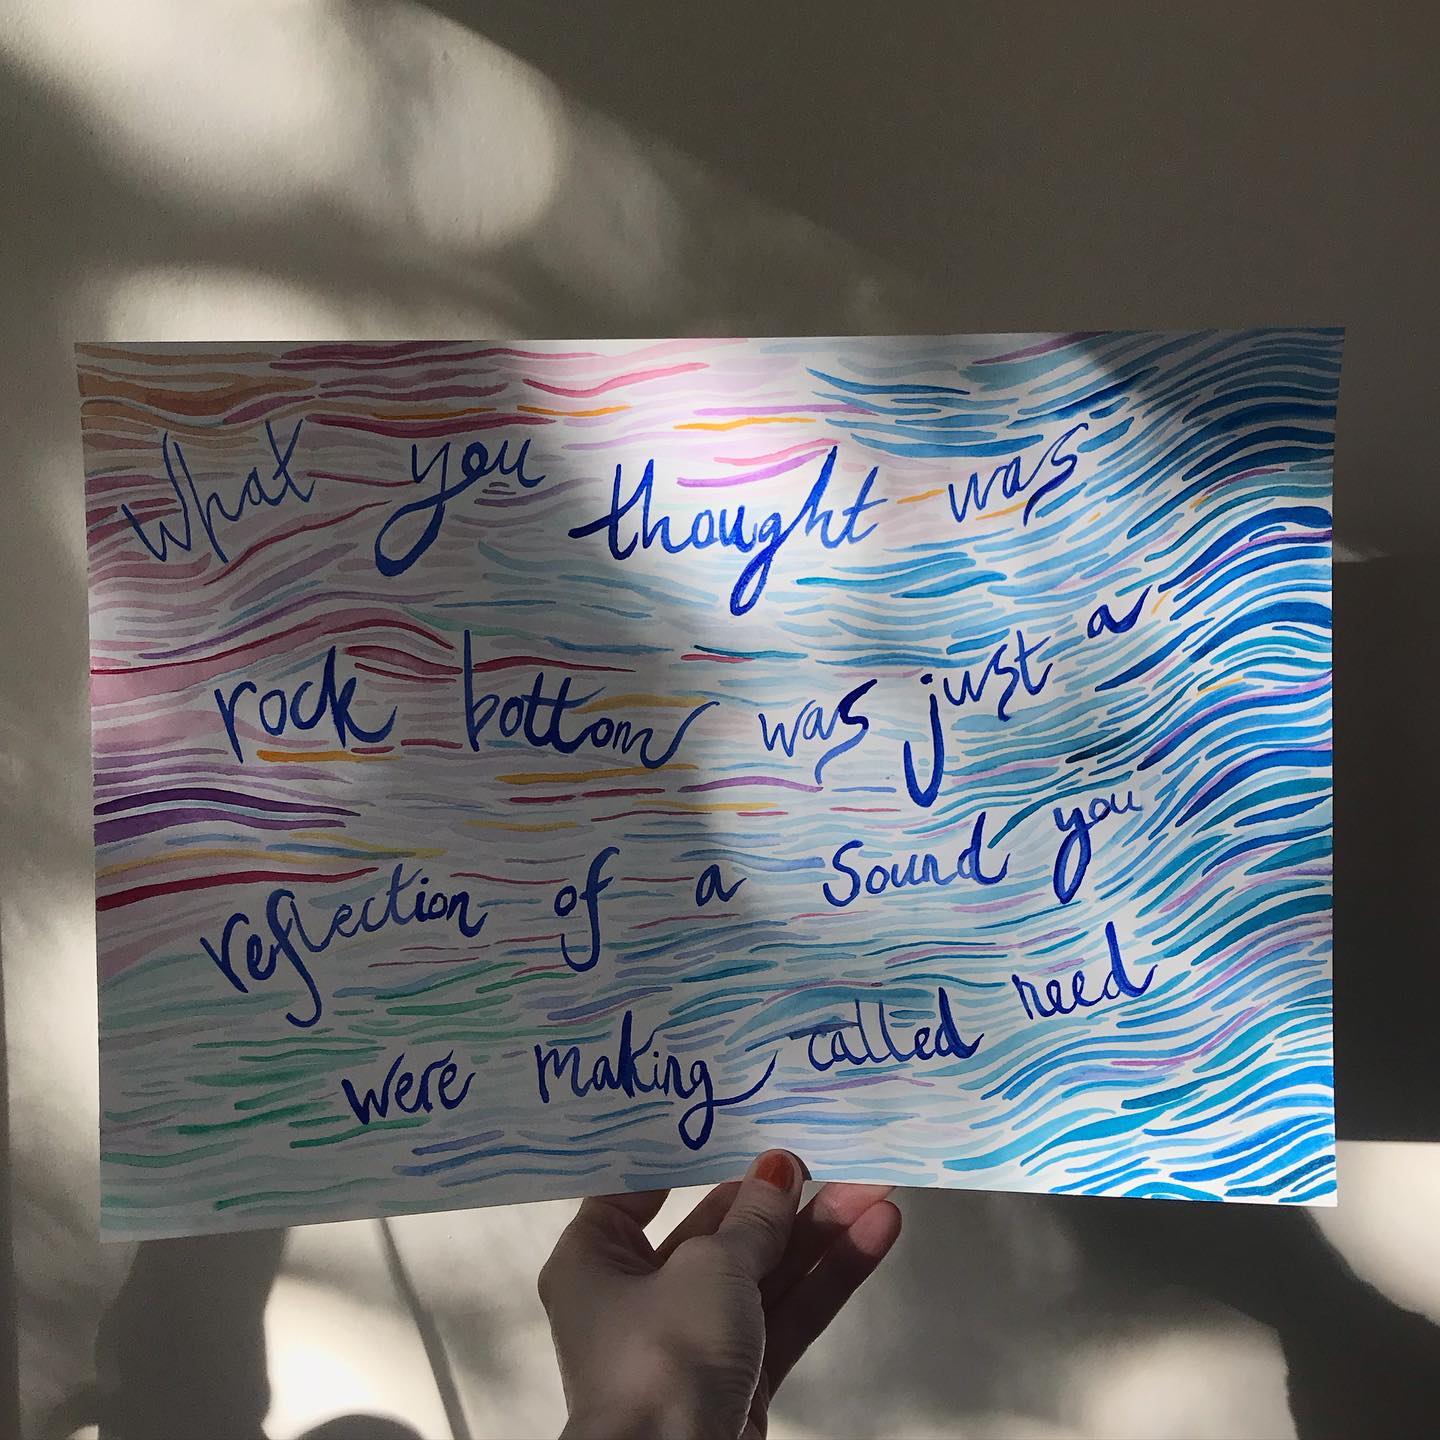 What you thought was
rock bottom was just a
reflection of a sound you
were making called need